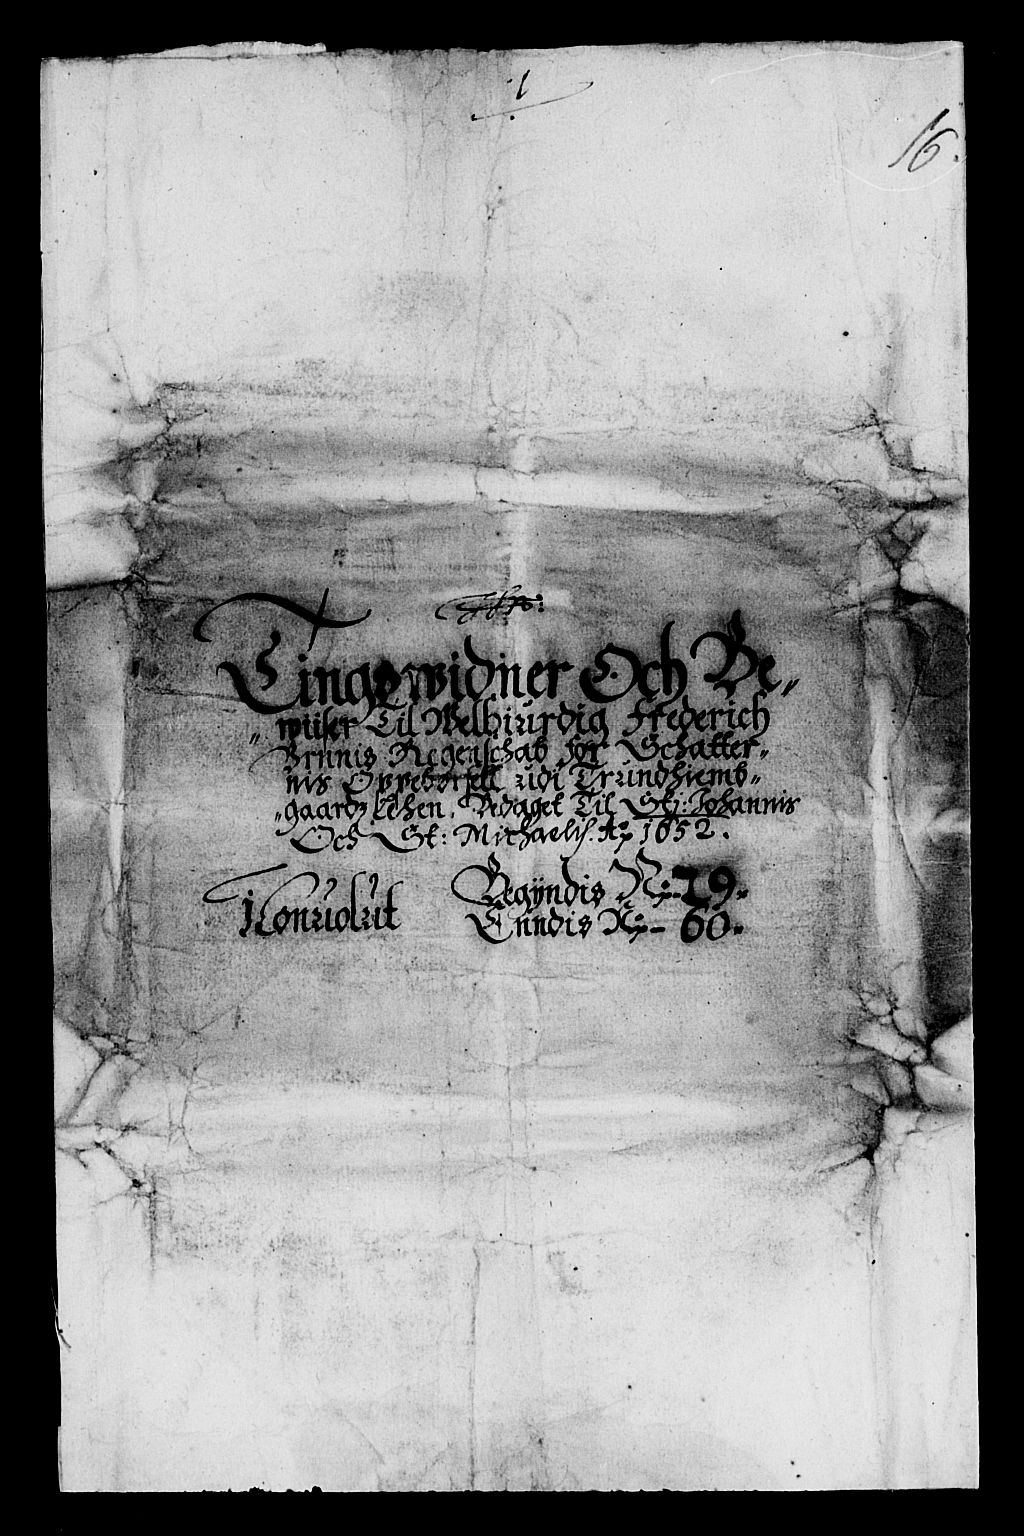 1
16.
Tingswidner Och Be„
„wiiser Til Welbiurdig Frederich
Brunis Regenschab for Schatter„
nis Oppebørsell udi Trundhiemb„
„gaardz Lehen. Bedaget Til St: Johannis
Och St: Michaelis. Ao 1652.
Begyndis No: 29.
Conuolut Enndis No - 60.